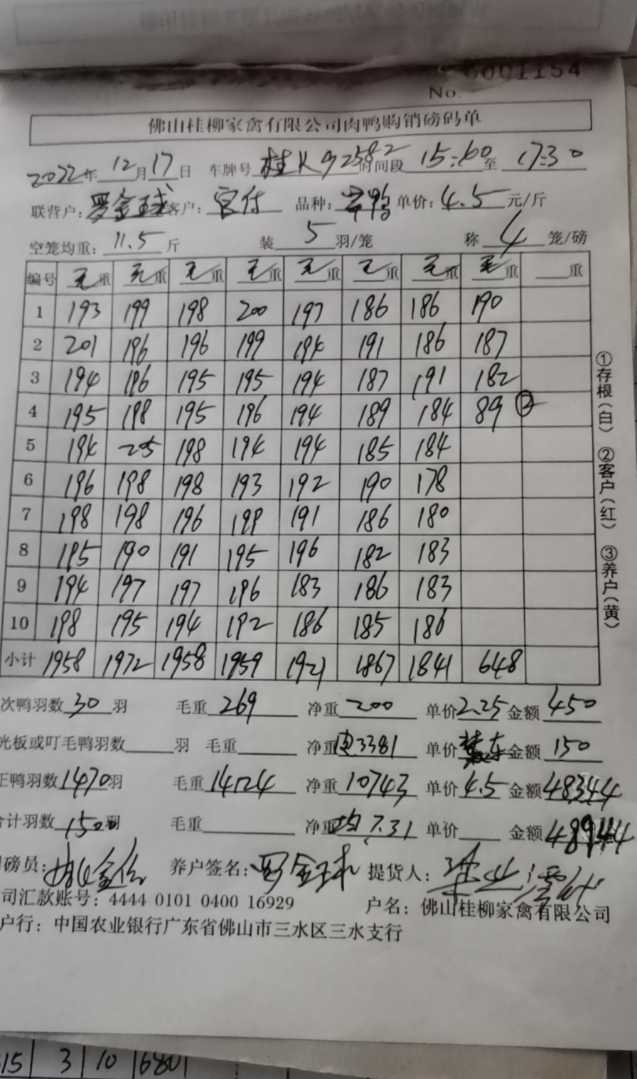 0001154
No
佛山桂柳家禽有限公司肉鸭购销磅码单
2022年12月17日 车牌号 桂K92582 时间段 15:00至 17:30
联营户: 罗金球 客户: 品种: 单价: 4.5 元/斤
空笼均重: 11.5 斤 装 5 羽/笼 称 4 笼/磅
编号 毛重 毛重 毛重 毛重 毛重 毛重 毛重 毛重 重
1 193 199 198 200 197 186 186 190
2 201 196 196 199 194 191 186 187
3 194 196 195 195 194 187 191 182
4 195 198 195 196 194 189 184 89 ②
5 194 205 198 194 194 185 184
6 196 198 198 193 192 190 178
7 198 198 196 199 191 186 180
8 195 190 191 195 196 182 183
9 194 197 197 196 183 186 183
10 198 195 194 192 186 185 186
小计 1958 1972 1958 1959 1921 1867 1841 648
①存根(白) ②客户(红) ③养户(黄)
次鸭羽数 30 羽 毛重 269 净重 200 单价 2.25 金额 450
光板或叮毛鸭羽数 羽 毛重 净重 3381 单价 金额 150
正鸭羽数 1470 羽 毛重 14124 净重 10743 单价 4.5 金额 48344
合计羽数 1500 羽 毛重 净重 均7.31 单价 金额 48944
磅员: 养户签名: 罗金球 提货人:
司汇款账号: 4444 0101 0400 16929 户名: 佛山桂柳家禽有限公司
户行: 中国农业银行广东省佛山市三水区三水支行
15 3 10 680